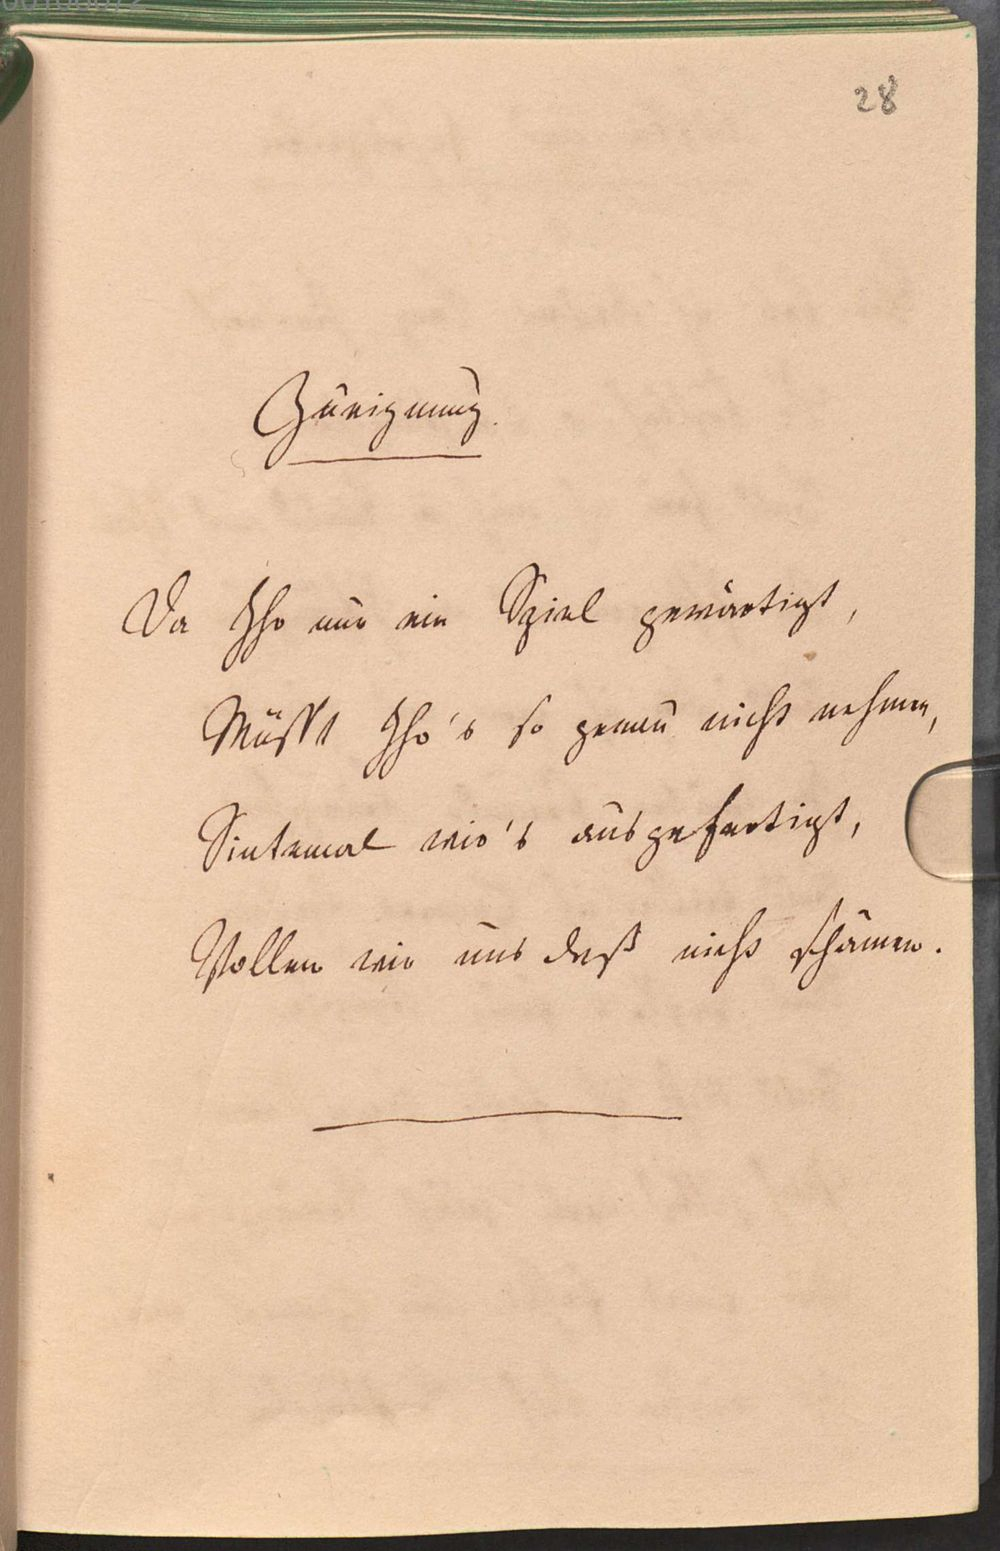 28
Zueignung.
Da Ihr nur ein Spiel gewärtigt,
Müßt Ihr's so genau nicht nehmen,
Sintemal wir's ausgefertigt,
Wollen wir uns deß nicht schämen.